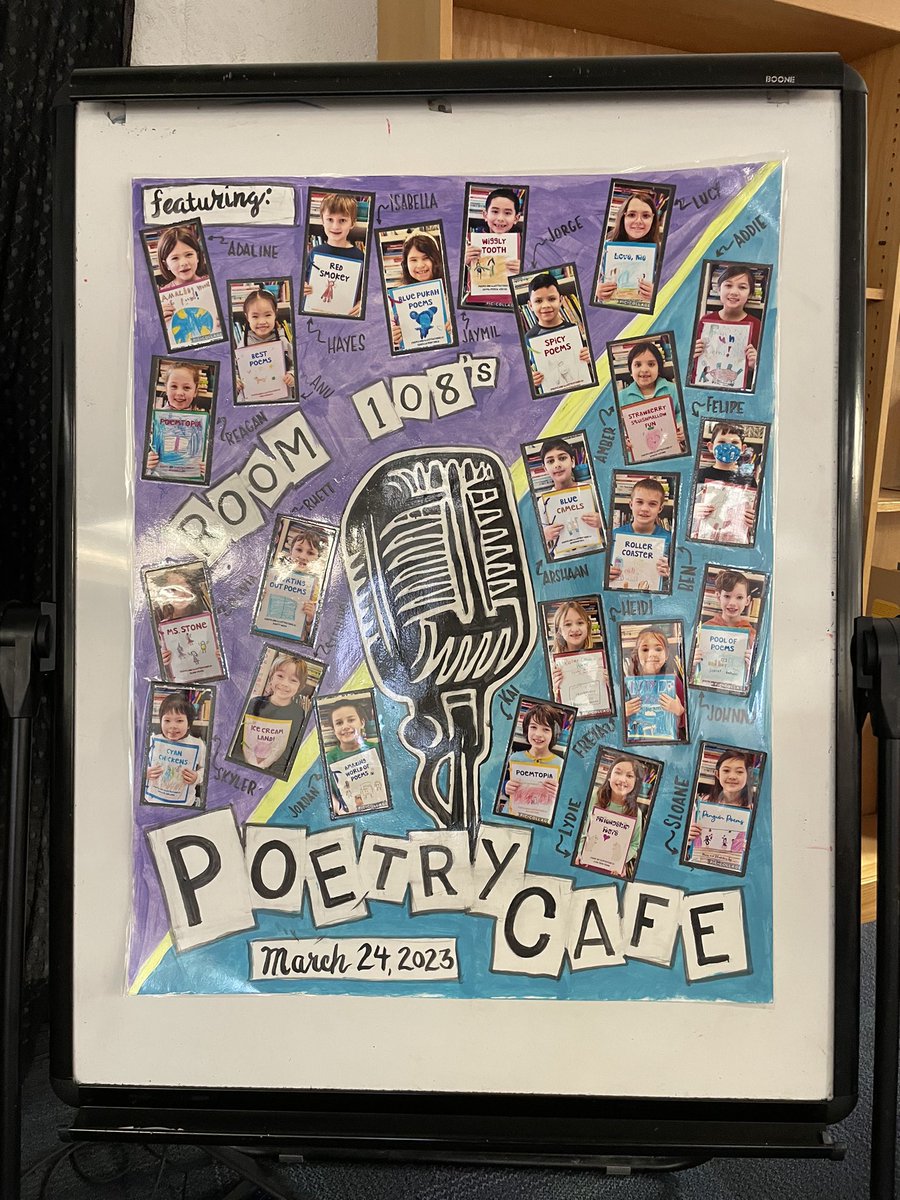 BOONE
featuring:
ADALINE
ISABELLA
JORGE
LUCY
ADDIE
RED
SMOKEY
WIGGLY
TOOTH
Love, Kig
BLUE PUKAH
POEMS
HAYES
JAYMIL
BEST
POEMS
ANV
SPICY
POEMS
POEMTOPIA
REAGAN
STRAWBERRY
SQUISHMALLOW
FUN
AMBER
FELIPE
ROOM 108's
RHETT
BLUE
CAMELS
ARSHAAN
ROLLER
COASTER
BEN
HEIDI
OUT POEMS
MS. STONE
POOL OF
POEMS
JOHNNY
ICE CREAM
LAND!
CYAN
CHICKENS
SKYLER
JORDAN
AMAZING
WORLD OF
POEMS
KAI
POEMTOPIA
PIC•COLLAGE
FREYA
LYDE
SLOANE
Penguin Poems
POETRY
CAFE
March 24, 2023